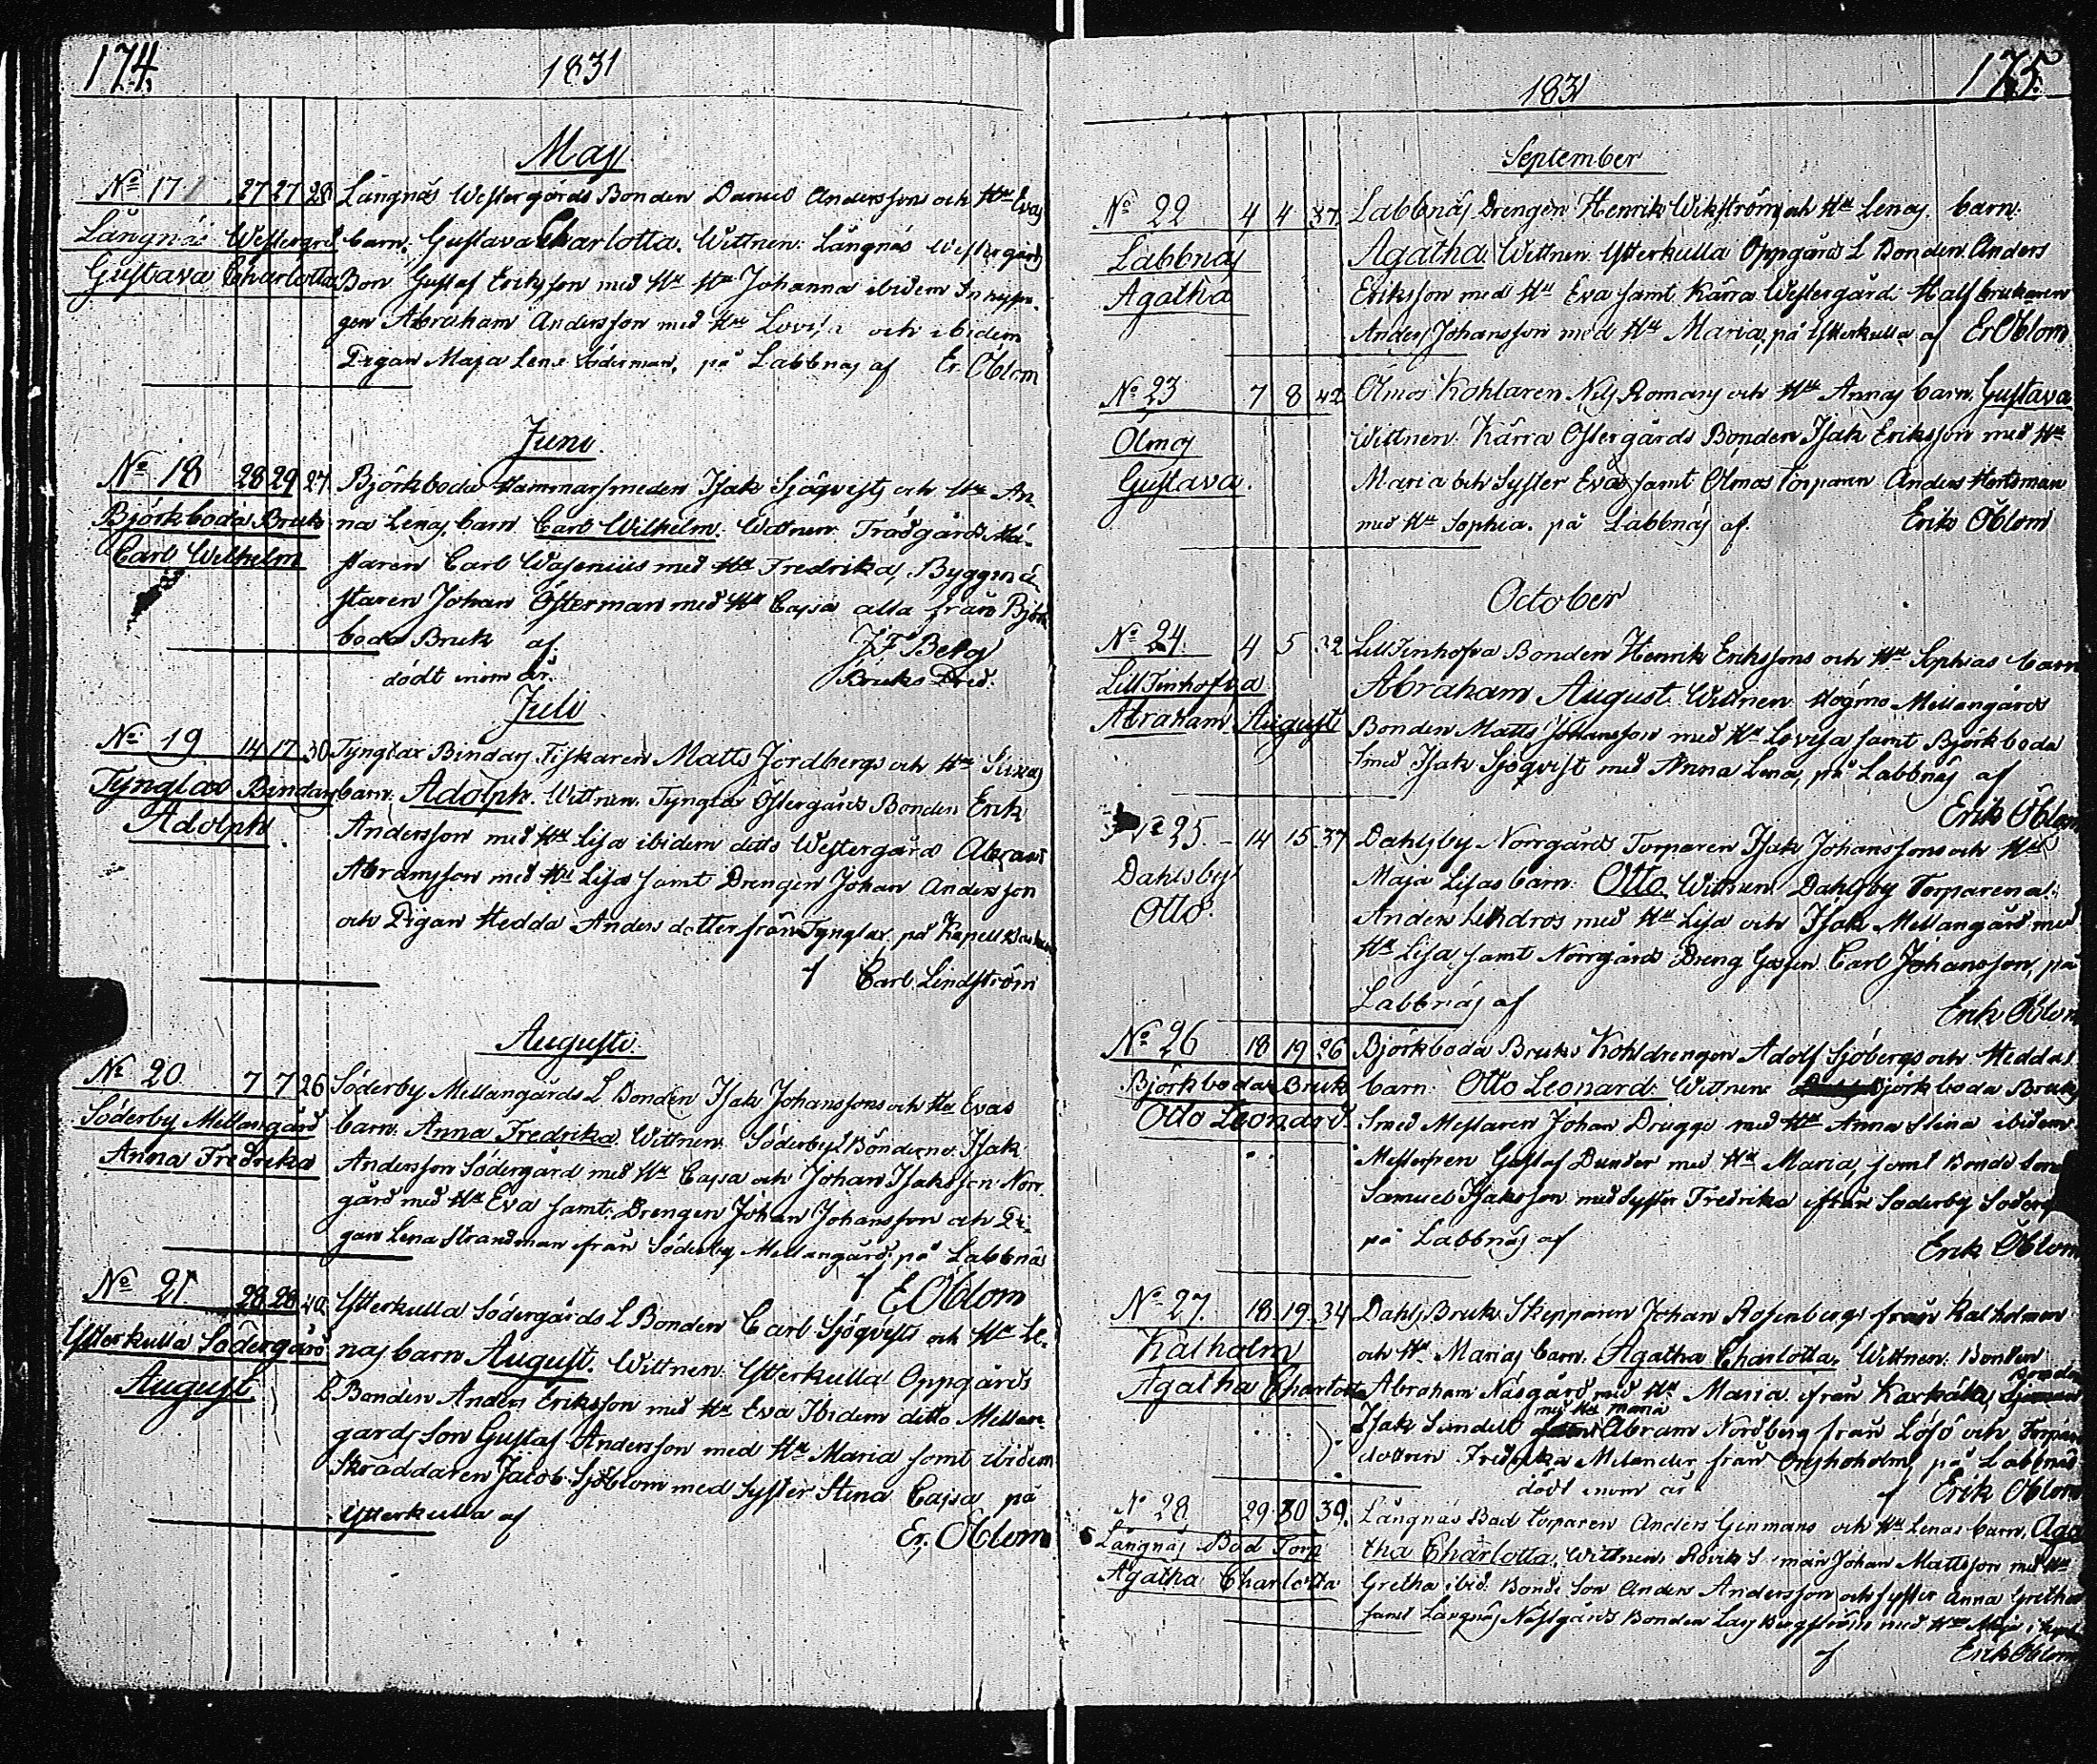 174.
1831
Maji
No 17 27 27 28 Långnäs Westergårds Bonden Daniel Anderssons och Hu Evas
Långnäs Westergrd barn: Gustava Charlotta. Wittnen: Långnäs Westergårds
Gustava Charlotta Bon Gustaf Eriksson med Hu Johanna ibidem
gen Abraham Andersson med Hu Lovisa och ibidem
Pigan Maja Lena Söderman, på Labbnäs af Er. Öblom
Juni
No 18 28 29 27 Björkboda Hammarsmeden Isak Sjöqvists och Hu An-
Björkboda Bruk na Lenas barn Carl Wilhelm. Wittnen Trädgårds Mä-
Carl Wilhelm staren Carl Wasenius med Hu Fredrika, Byggmä
staren Johan Österman med Hu Cajsa alla från Björk
boda Bruk af. J F Berg
dödt inom år. Bruks Pred.
Juli
No 19 14 17 30 Tynglax Bindas Fiskaren Matts Jordbergs och Hu
Tynglax Bindas barn: Adolph. Wittnen. Tynglax Östergårds Bonden Erik
Adolph Andersson med Hu Lisa ibidem ditto Westergårds Abram
Abramsson med Hu Lisa samt Drengen Johan Andersson
och Pigan Hedda Andersdotter från Tynglax, på
af Carl Lindström
Augusti.
No 20 7 7 26 Söderby Mellangårds L Bonden Isak Johanssons och Hu Evas
Söderby Mellangård barn. Anna Fredrika. Wittnen. Söderby L Bönderne Isak
Anna Fredrika Andersson Södergård med Hu Cajsa och Johan Isaksson Norr-
gård med Hu Eva samt Drengen Johan Johansson och Pi-
gan Lena Strandman från Söderby Mellangård, på Labbnäs
af E Öblom
No 21 28 28 40 Ytterkulla Södergårds L Bonden Carl Sjöqvists och Hu Le-
Ytterkulla Södergård nas barn August. Wittnen: Ytterkulla Oppgårds
August. L Bonden Anders Eriksson med Hu Eva Ibidem ditto Mellan-
gards Son Gustaf Andersson med Hu Maria samt ibidem
Skräddaren Jacob Sjöblom med Syster Stina Cajsa på
Ytterkulla af Er. Öblom
175.
1831
September
No 22 4 4 37. Labbnäs Drengen Henrik Wikströms och Hu Lenas barn:
Labbnäs Agatha Wittnen Ytterkulla Oppgårds L Bonden Anders
Agatha Eriksson med Hu Eva samt Kärra Westergård Halfbrukaren
Anders Johansson med Hu Maria, på Ytterkulla af Er Öblom
No 23 7 8 42 Ölmos Kohlaren Nils Romans och Hu Annas barn. Gustava
Ölmos Wittnen: Kärra Östergårds Bonden Isak Eriksson med Hu
Gustava. Maria och Syster Eva samt Ölmos Torparen Anders Hertsman
med Hu Sophia. på Labbnäs af. Erik Öblom
October
No 24. 4 5 32 LillFinhofva Bonden Henrik Erikssons och Hu Sophias barn
LillFinhofva Abraham August Wittnen Högmo Mellangårds
Abraham August Bonden Matts Johansson med Hu Lovisa samt Björkboda
Smed Isak Sjöqvist med Anna Lena, på Labbnäs af
Erik Öblom
No 25. 14 15 37 Dahlsby Norrgårds Torparen Isak Johanssons och Hu
Dahlsby Maja Lisas barn: Otto Wittnen: Dahlsby Torparena:
Otto. Anders Lindros med Hu Lisa och Isak Mellangård med
Hu Lisa samt Norrgårds Dreng Gossen Carl Johansson, på
Labbnäs af Erik Öblom
No 26 18 19 26 Björkboda Bruks Kohldrengen Adolf Sjöbergs och Heddas
Björkboda Bruk barn: Otto Leonard. Wittnen Björkboda Bruks
Otto Leonard. Smed Mestaren Johan Drugge med Hu Anna Stina ibidem
Mestersven Gustaf Dunder med Hu Maria, samt Bonde Sone
Samuel Isaksson med Syster Fredrika ifrån Söderby
på Labbnäs af Erik Öblom
No 27. 18 19 34 Dahls Bruk Skepparen Johan Rosenbergs från Kalholmen
Kalholm och Hu Marias barn. Agatha Charlotta, Wittnen: Bonden
Agatha Charlotta Abraham Näsgård med Hu Maria ifrån Karkäla, Bonden
med Hu Maria
Isak Sundell Abram Nordberg från Löfö och
dottren Fredrika Melander från på Labbnäs
dödt inom år af Erik Öblom
No 28. 29 30 39. Långnäs Bad torparen Anders Ginmans och Hu Lenas barn. Aga
Långnäs Bod Torp tha Charlotta, Wittnen, Rövik Johan Mattsson med Hu
Agatha Charlotta Gretha ibid: Bonde Son Anders Andersson och syster Anna Gretha
samt Långnäs Bonden Lars Bergström med Hu Maja
af Erik Öblom